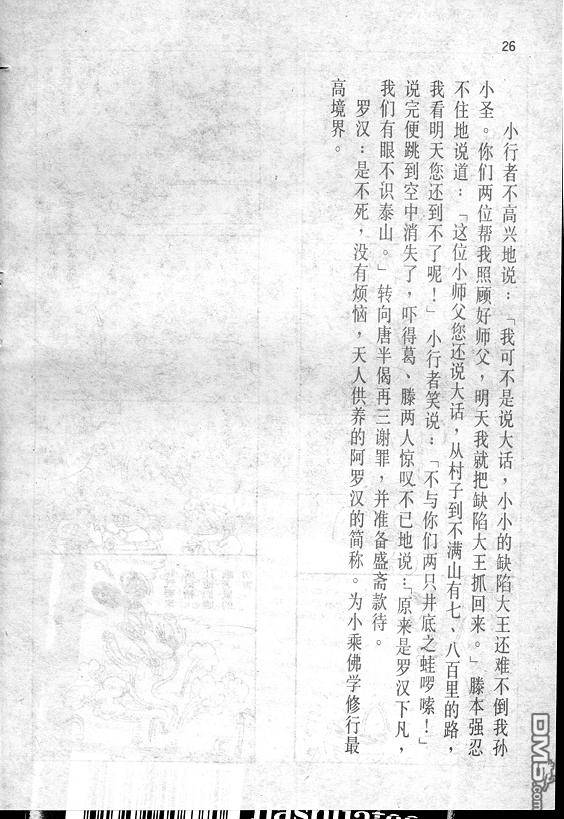 26
小行者不高兴地说：「我可不是说大话，小小的缺陷大王还难不倒我孙
小圣。你们两位帮我照顾好师父，明天我就把缺陷大王抓回来。」滕本强忍
不住地说道：「这位小师父您还说大话，从村子到不满山有七、八百里的路，
我看明天您还到不了呢！」小行者笑说：「不与你们两只井底之蛙啰嗦！」
说完便跳到空中消失了，吓得葛、滕两人惊叹不已地说：「原来是罗汉下凡，
我们有眼不识泰山。」转向唐半偈再三谢罪，并准备盛斋款待。
罗汉：是不死，没有烦恼，天人供养的阿罗汉的简称。为小乘佛学修行最
高境界。
DM5.com